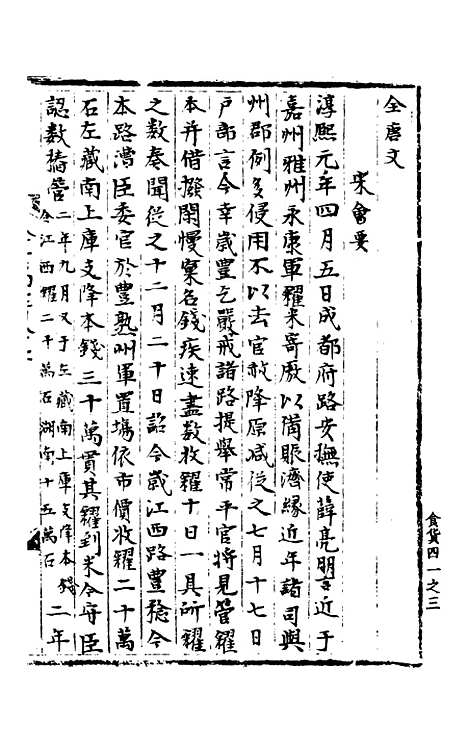 全唐文
宋會要
淳熙元年四月五日成都府路安撫使薛亮明言近于
嘉州雅州永康軍糴米寄厫以備賑濟緣近年諸司與
州郡例多侵用不以去官赦降原減從之七月十七日
戶部言今幸歲豐乞嚴戒諸路提舉常平官將見管糴
本并借撥閑慢窠名錢疾速盡數收糴十日一具所糴
之數奏聞從之十二月二十日詔今歲江西路豐稔令
本路漕臣委官於豐熟州軍置場依市價收糴二十萬
石左藏南上庫支降本錢三十萬貫其糴到米令守臣
認數樁管二年九月又于左藏南上庫支降本錢
令江西糴二十萬石湖南十五萬石
二年
食貨四一之三